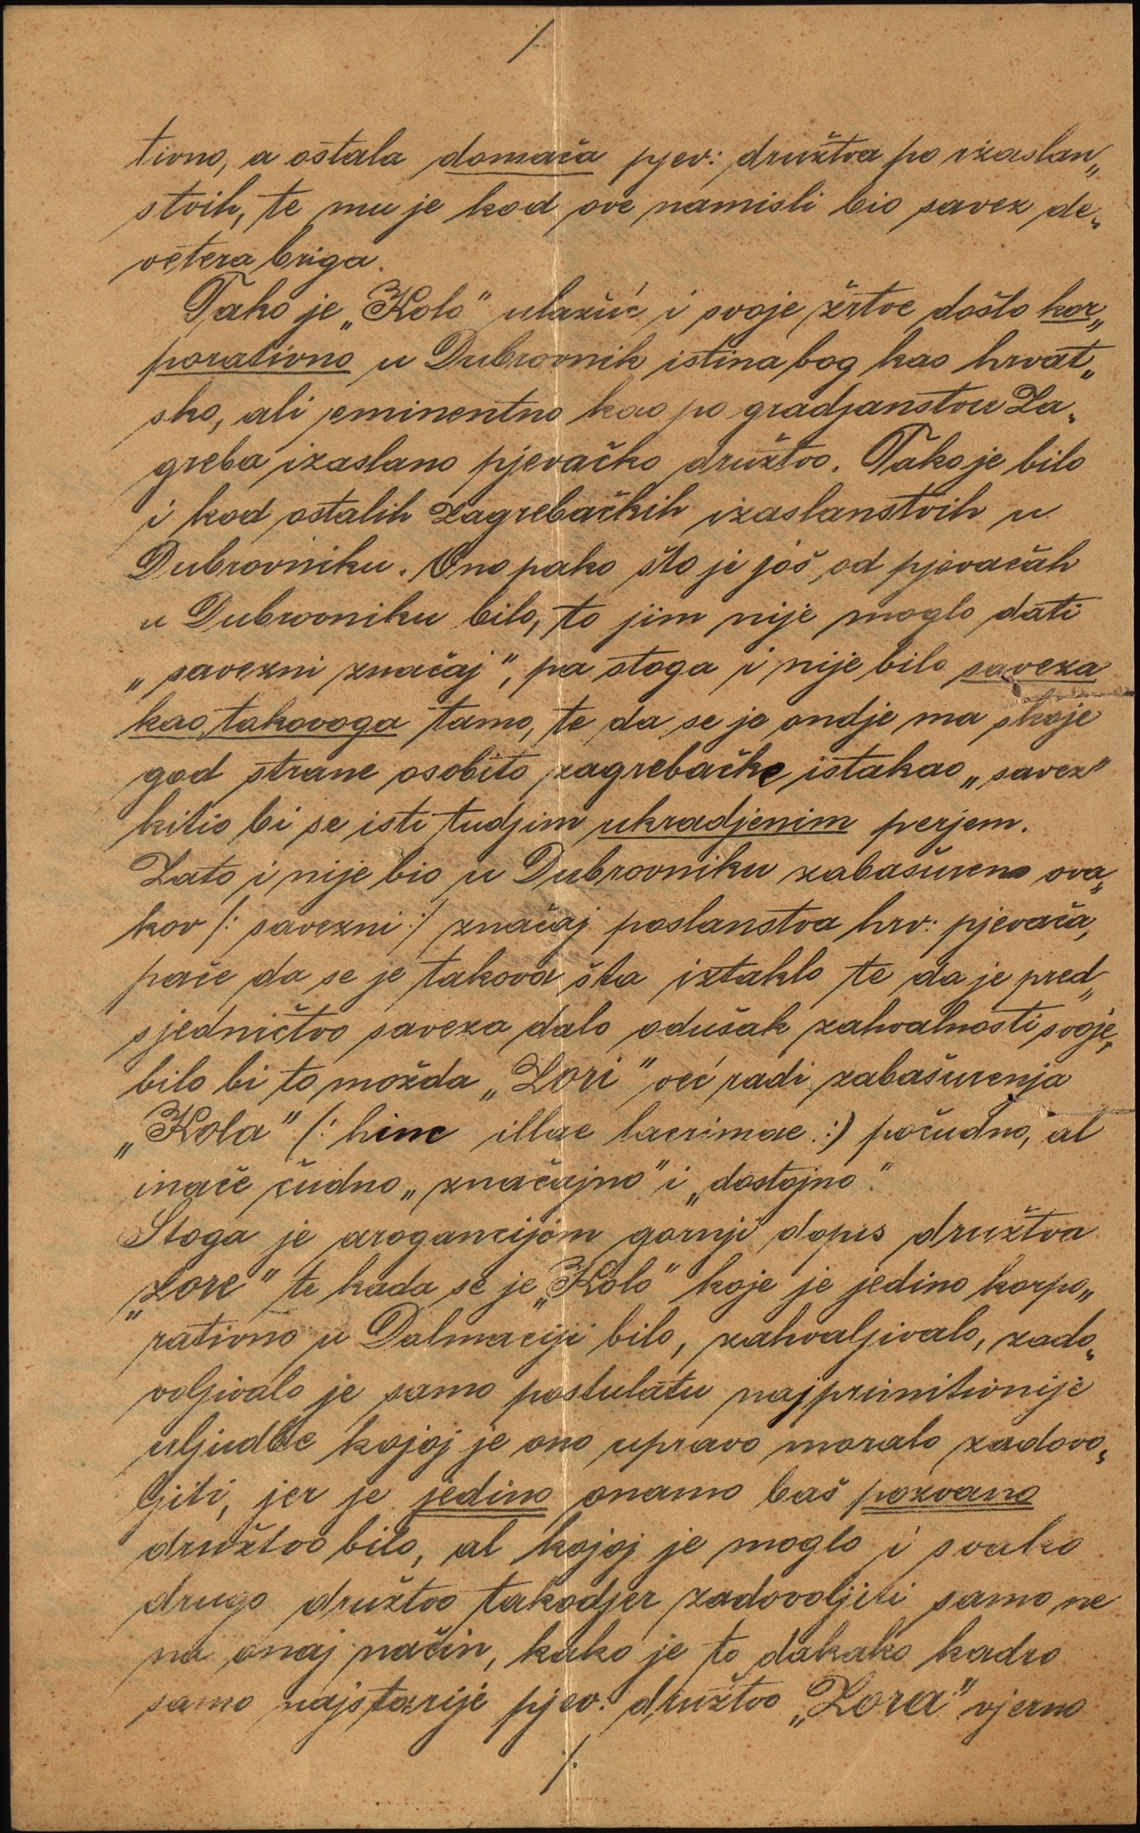 ./.
tivno, a ostala domaća pjev: družtva po izaslan„
stvih, te mu je kod ove namisli bio savez de„
vetera briga.
Tako je „Kolo" ulažuć i svoje žrtve došlo kor„
porativno u Dubrovnik istina bog kao hrvat„
sko, ali eminentno kao po gradjanstvu Za„
greba izaslano pjevačko družtvo. Tako je bilo
i kod ostalih Zagrebačkih izaslanstvih u
Dubrovniku. Ono pako što je još od pjevačah
u Dubrovniku bilo, to jim nije moglo dati
„savezni značaj", pa stoga i nije bilo saveza
kao takovoga tamo, te da se je ondje ma s koje
god strane osobito zagrebačke istakao „savez"
kitio bi se isti tudjim ukradjenim perjem.
Zato i nije bio u Dubrovniku zabašuren ova„
kov /: savezni :/ značaj poslanstva hrv: pjevača,
pače da se je takova šta iztaklo te da je pred„
sjedničtvo saveza dalo odušak zahvalnosti svoje,
bilo bi to možda „Zori" već radi zabašurenja
„Kola" (: hinc illae lacrimae :) poćudno, al
inače čudno „značajno" i „dostojno".
Stoga je arogancijom gornji dopis družtva
„Zore" te kada se je „Kolo" koje je jedino korpo„
rativno u Dalmaciji bilo, zahvaljivalo, zado„
voljivalo je samo postulatu najprimitivnije
uljudbe kojoj je ono upravo moralo zadovo„
ljiti, jer je jedino onamo baš pozvano
družtvo bilo, al kojoj je moglo i svako
drugo družtvo takodjer zadovoljiti samo ne
na onaj način, kako je to dakako kadro
samo najstarije pjev: družtvo „Zora" vjerno
./.